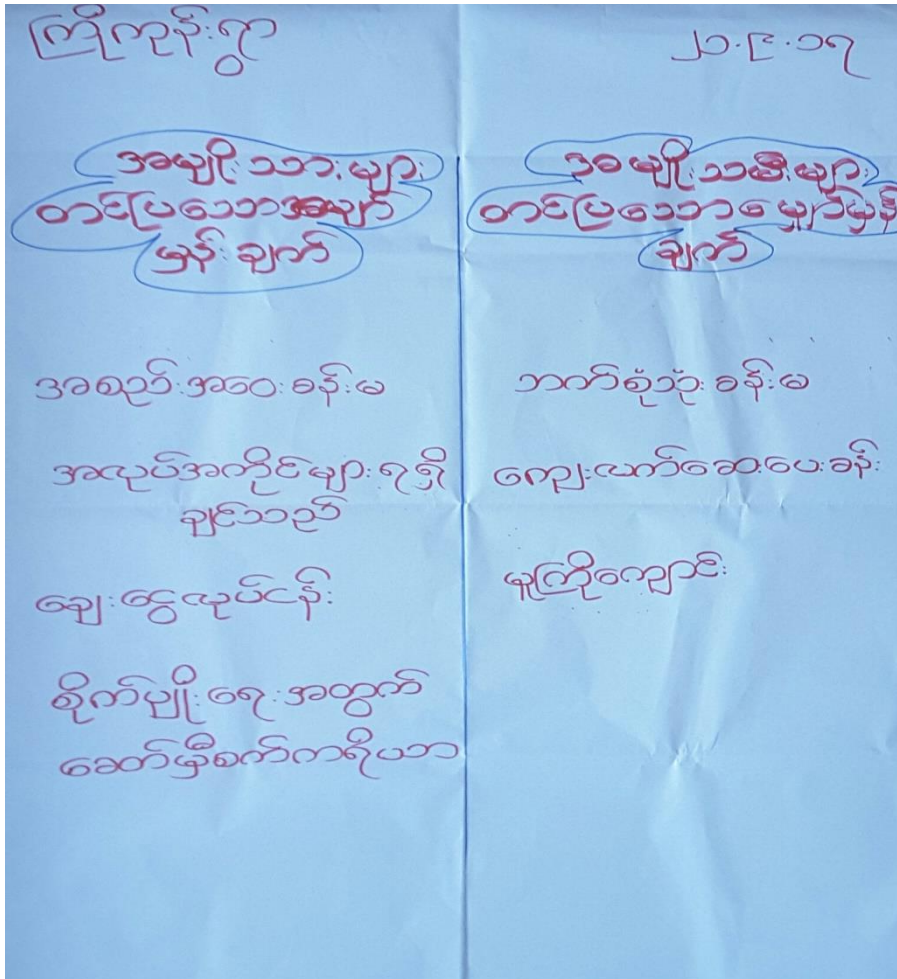 ကြိုကုန်းရွာ
၂၁.၉.၁၇
အမျိုးသားများ
တင်ပြသော မျှော်
မှန်းချက်
အစည်းအဝေးခန်းမ
အလုပ်အကိုင်များရရှိ
ချင်သည်
ချေးငွေလုပ်ငန်း
စိုက်ပျိုးရေးအတွက်
ခေတ်မှီစက်ကရိယာ
အမျိုးသမီးများ
တင်ပြသောမျှော်မှန်း
ချက်
ဘက်စုံသုံးခန်းမ
ကျေးလက်ဆေးပေးခန်း
မူကြိုကျောင်း